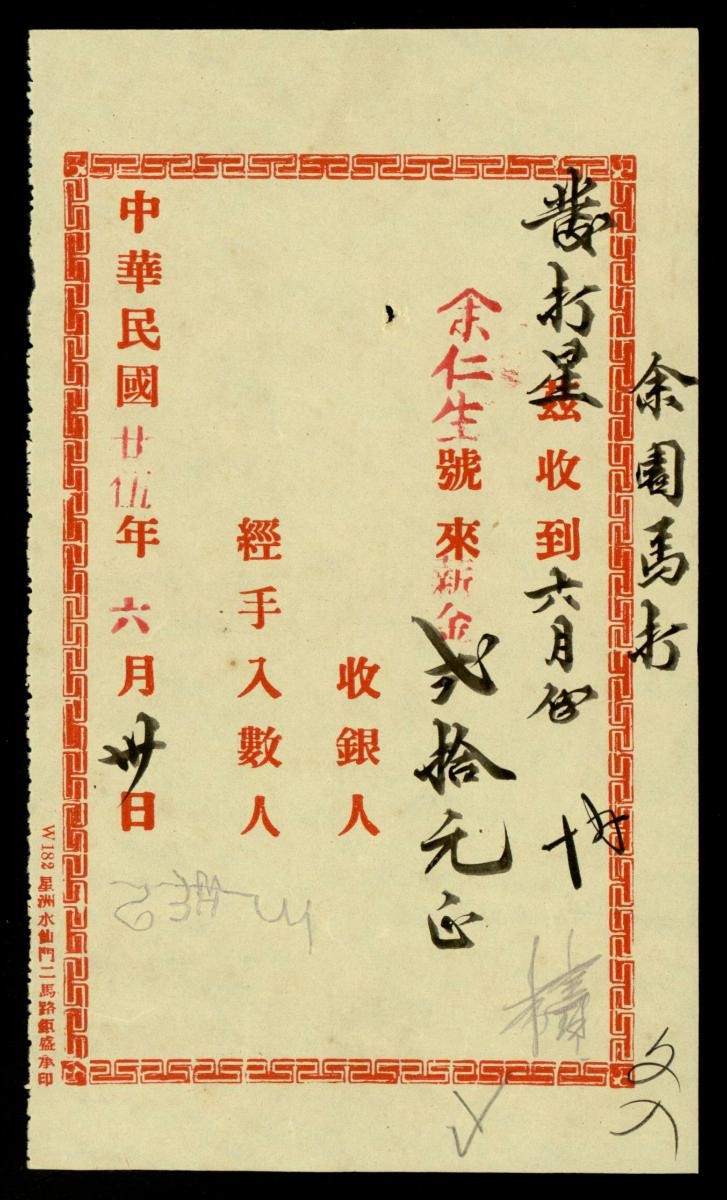 余園馬打
打星
茲收到六月份
余仁生號來薪金弍拾元正
收銀人
經手入數人
中華民國廿伍年六月卅日
W182 星洲水仙門二馬路鉅盛承印